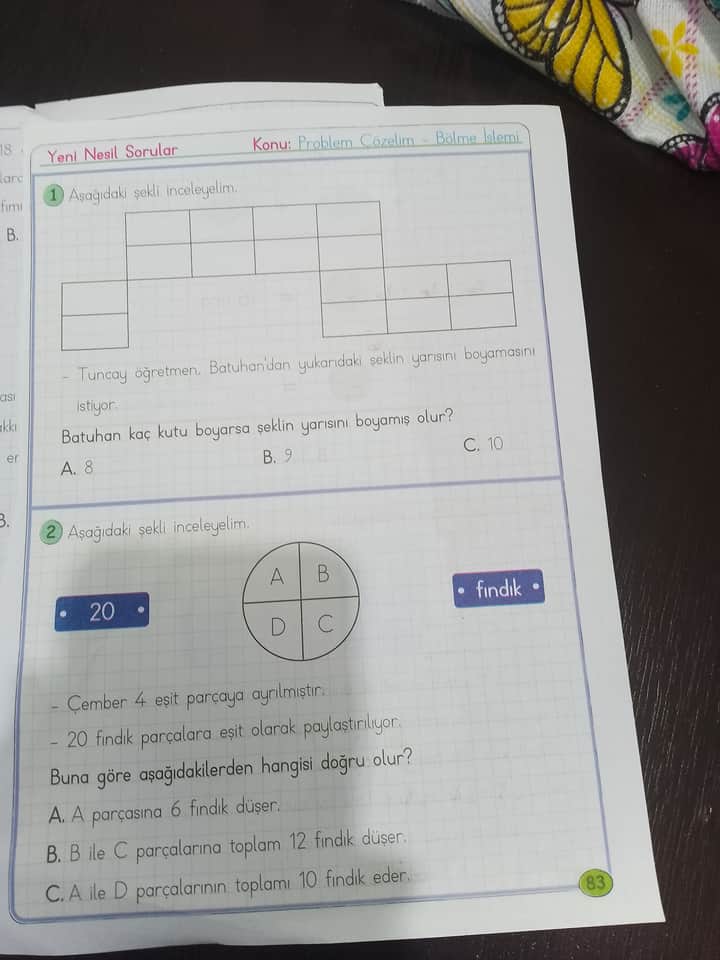 18
larc
fımı
B.
ası
akkı
er
B.
Yeni Nesil Sorular
Konu: Problem Çözelim - Bölme İşlemi
1 Aşağıdaki şekli inceleyelim.
- Tuncay öğretmen, Batuhan'dan yukarıdaki şeklin yarısını boyamasını
istiyor.
Batuhan kaç kutu boyarsa şeklin yarısını boyamış olur?
A. 8 B. 9 C. 10
2 Aşağıdaki şekli inceleyelim.
A B
20 fındık
D C
- Çember 4 eşit parçaya ayrılmıştır.
- 20 fındık parçalara eşit olarak paylaştırılıyor.
Buna göre aşağıdakilerden hangisi doğru olur?
A. A parçasına 6 fındık düşer.
B. B ile C parçalarına toplam 12 fındık düşer.
C. A ile D parçalarının toplamı 10 fındık eder.
83